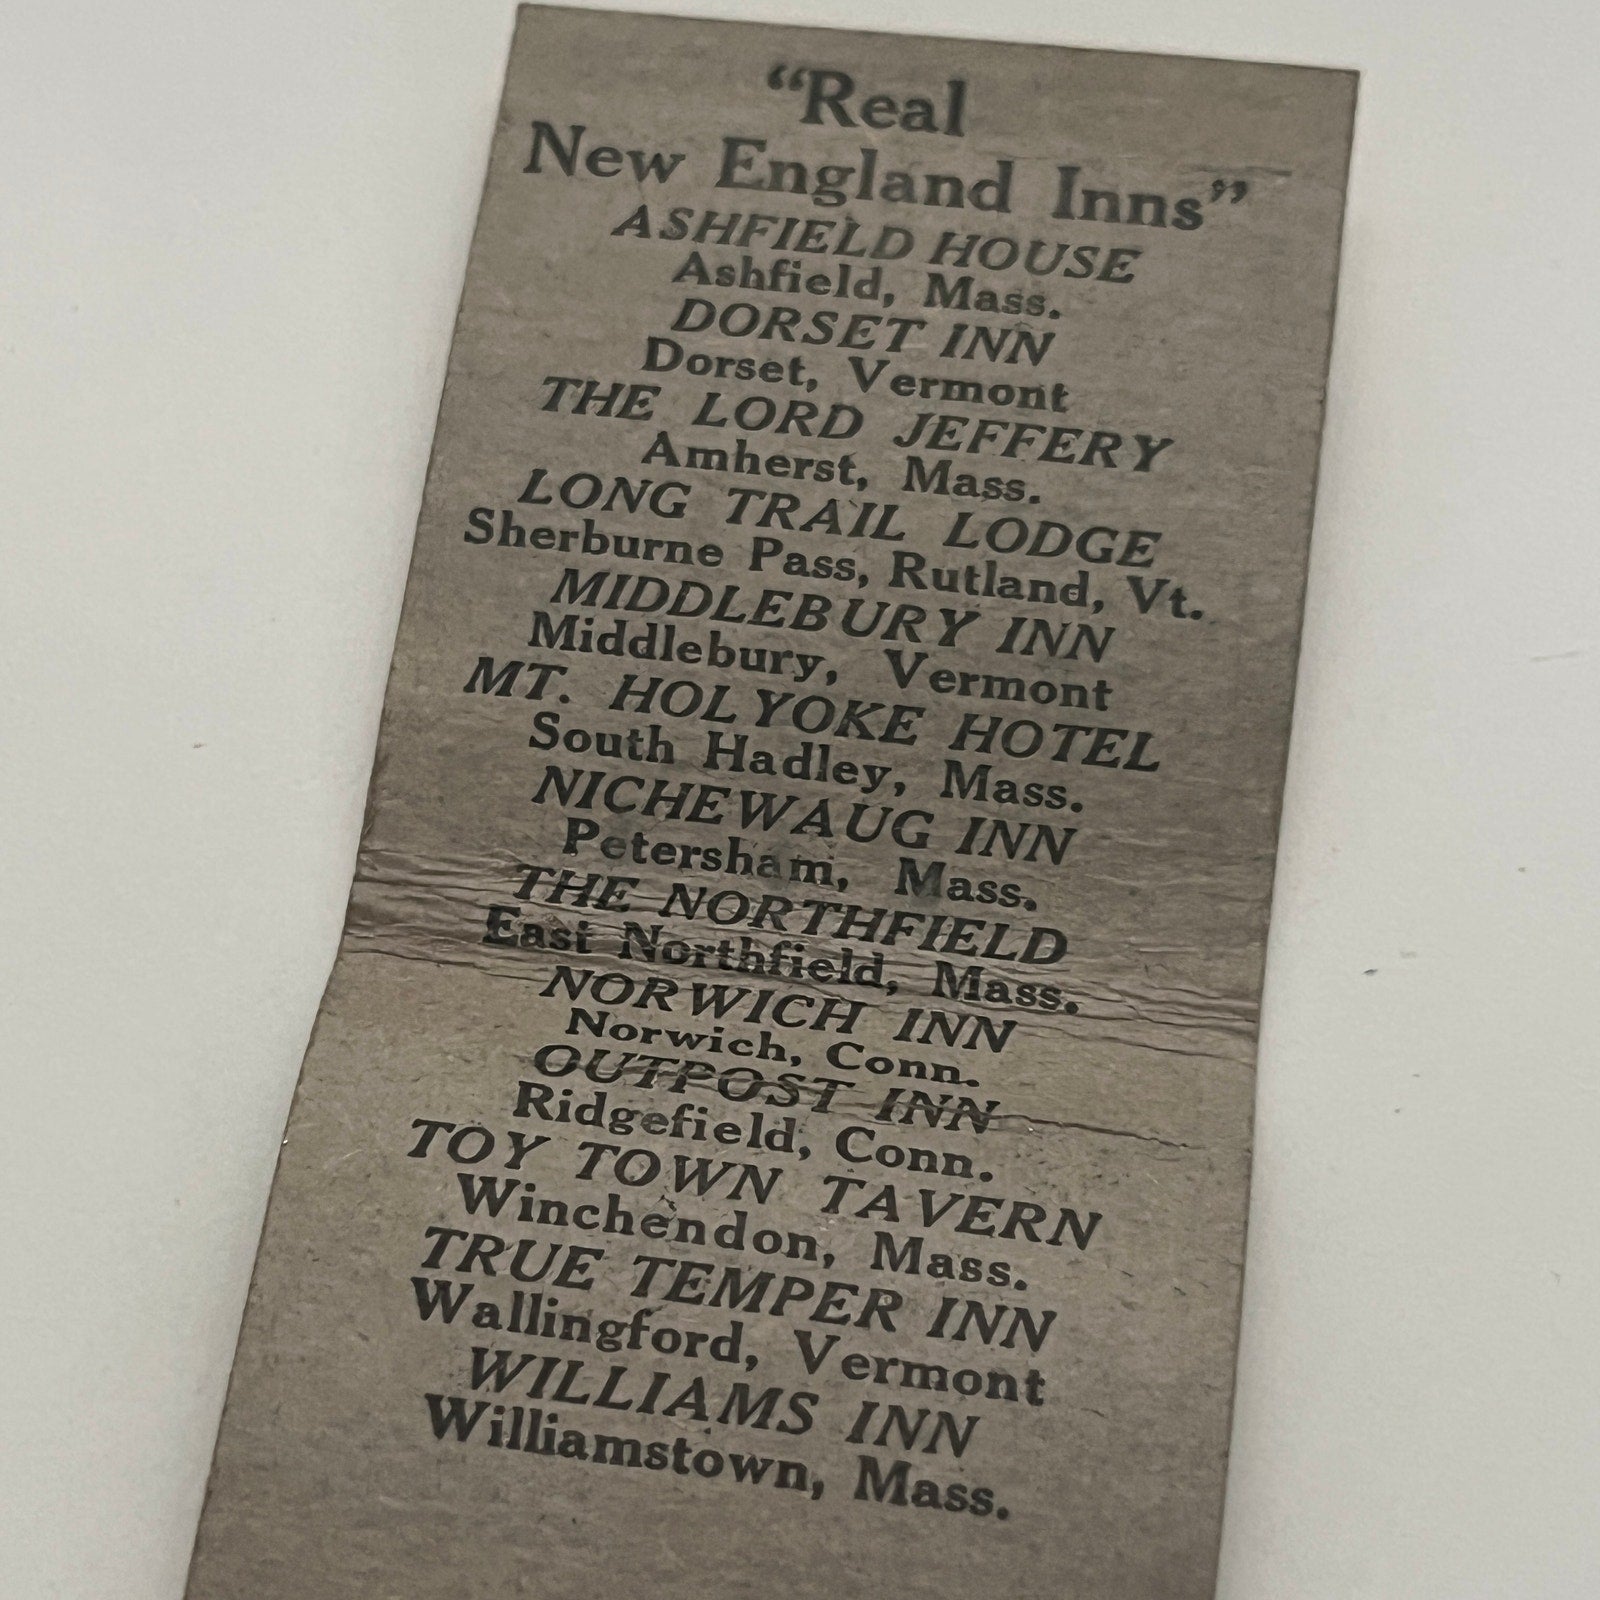 “Real
New England Inns”
ASHFIELD HOUSE
Ashfield, Mass.
DORSET INN
Dorset, Vermont
THE LORD JEFFERY
Amherst, Mass.
LONG TRAIL LODGE
Sherburne Pass, Rutland, Vt.
MIDDLEBURY INN
Middlebury, Vermont
MT. HOLYOKE HOTEL
South Hadley, Mass.
NICHEWAUG INN
Petersham, Mass.
THE NORTHFIELD
East Northfield, Mass.
NORWICH INN
Norwich, Conn.
OUTPOST INN
Ridgefield, Conn.
TOY TOWN TAVERN
Winchendon, Mass.
TRUE TEMPER INN
Wallingford, Vermont
WILLIAMS INN
Williamstown, Mass.